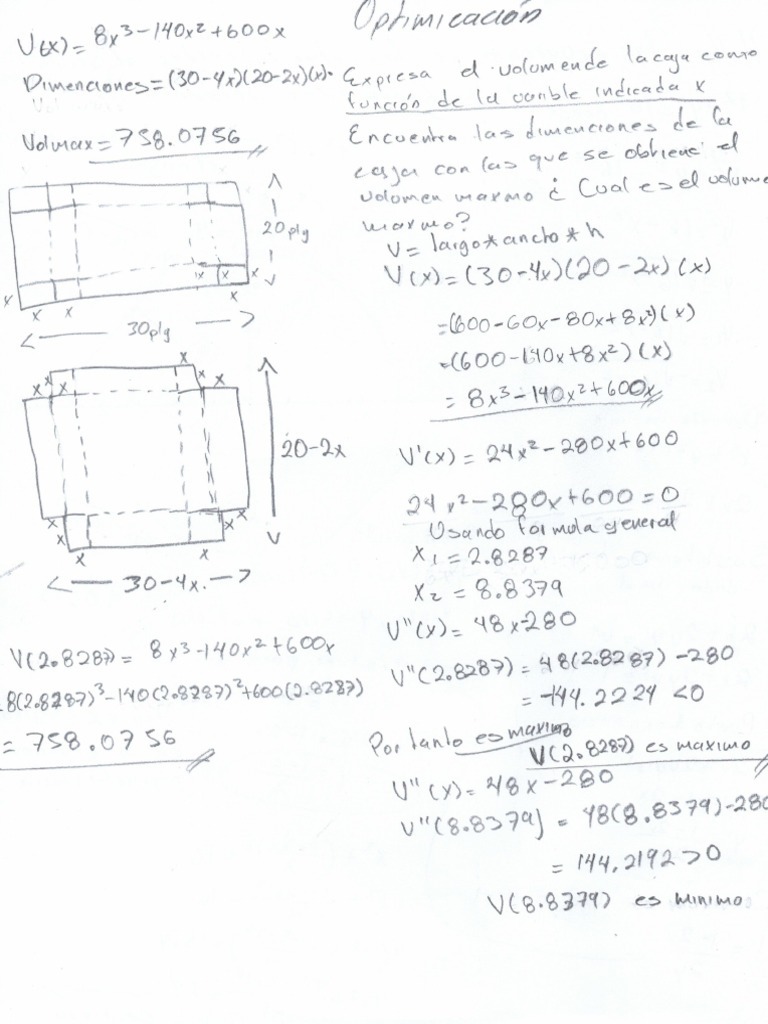 Optimicación
V(x) = 8x³-140x²+600x
Dimenciones = (30-4x)(20-2x)(x).
Volmax = 758.0756
20 plg
x x x x x x
30 plg
Expresa el volumen de la caja como
función de la varible indicada x
Encuentra las dimenciones de la
caja con las que se obtiene el
volumen maxmo ¿ Cual es el volume
maxmo?
V = largo*ancho*h
V(x) = (30-4x)(20-2x)(x)
=(600-60x-80x+8x²)(x)
=(600-140x+8x²)(x)
= 8x³-140x²+600x
V'(x) = 24x²-280x+600
24x²-280x+600=0
Usando formula general
x₁ = 2.8287
x₂ = 8.8379
V''(x) = 48x-280
V''(2.8287) = 48(2.8287)-280
= -144.2224 <0
Por tanto es maximo
V(2.8287) es maximo
V''(x) = 48x-280
V''(8.8379) = 48(8.8379)-280
= 144.2192>0
V(8.8379) es minimo
x x x x x x
20-2x
x x x x x x
30-4x.
V(2.8287) = 8x³-140x²+600x
8(2.8287)³-140(2.8287)²+600(2.8287)
= 758.0756